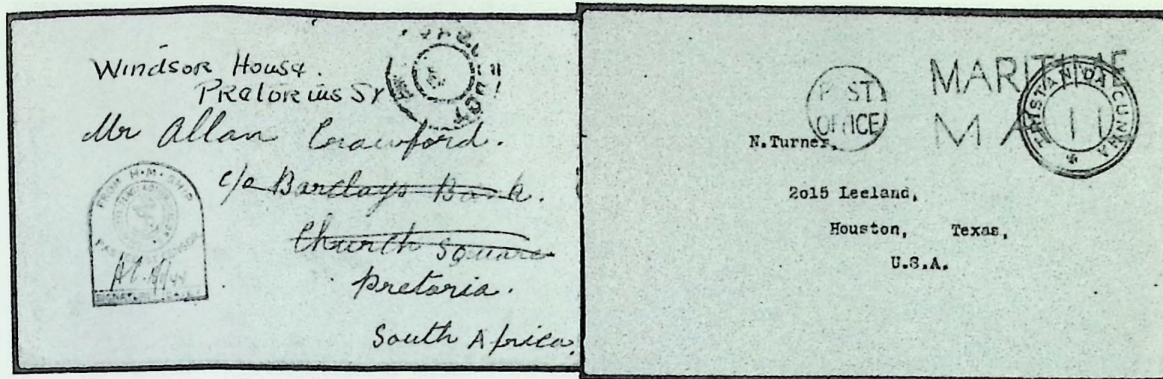 Windsor House.
Pretorius St
Mr Allan Crawford.
c/o Barclays Bank.
Church Square
Pretoria.
South Africa.
FROM H.M. SHIP
POST
OFFICE
MARITIME
MAIL
TRISTAN DA CUNHA
N.Turner,
2o15 Leeland,
Houston, Texas,
U.S.A.